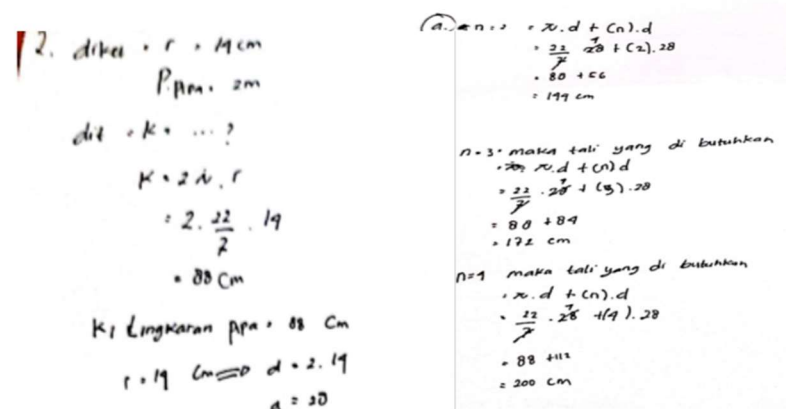 2. diket = r = 14 cm
P. Pipa = 2m
dit = k = ...?
K = 2 π . r
= 2 . 22/7 . 14
= 88 Cm
K1 Lingkaran pipa = 88 Cm
r = 14 Cm => d = 2 . 14
d = 28
a. n = 2 = π . d + (n) . d
= 22/7 28 + (2) . 28
= 88 + 56
= 144 cm
n = 3 = maka tali yang di butuhkan
= π . d + (n) d
= 22/7 . 28 + (3) . 28
= 88 + 84
= 172 cm
n = 4 maka tali yang di butuhkan
= π . d + (n) . d
= 22/7 . 28 + (4) . 28
= 88 + 112
= 200 cm